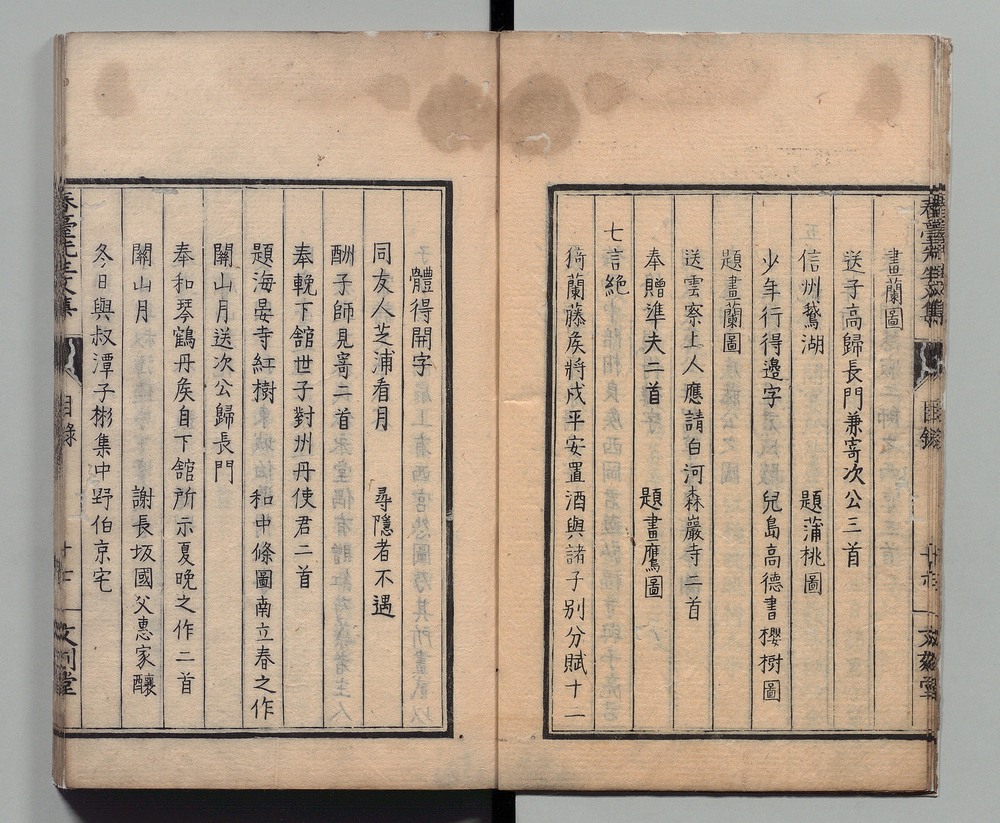 畫蘭圖
送子高歸長門兼寄次公三首
信州鵞湖 題蒲桃圖
少年行得邊字 兒島高德書櫻樹圖
題畫蘭圖
送雲察上人應請白河森巖寺二首
奉贈準夫二首 題畫鷹圖
七言絕
猗蘭藤矦將戍平安置酒與諸子別分賦十二
體得開字
同友人芝浦看月 尋隱者不遇
酬子師見寄二首
奉輓下館世子對州丹使君二首
題海晏寺紅樹 和中條圖南立春之作
關山月送次公歸長門
奉和琴鶴丹矦自下館所示夏晚之作二首
關山月 謝長坂國父惠家釀
冬日與叔潭子彬集中野伯京宅
春臺先生文集
目錄
文刻堂